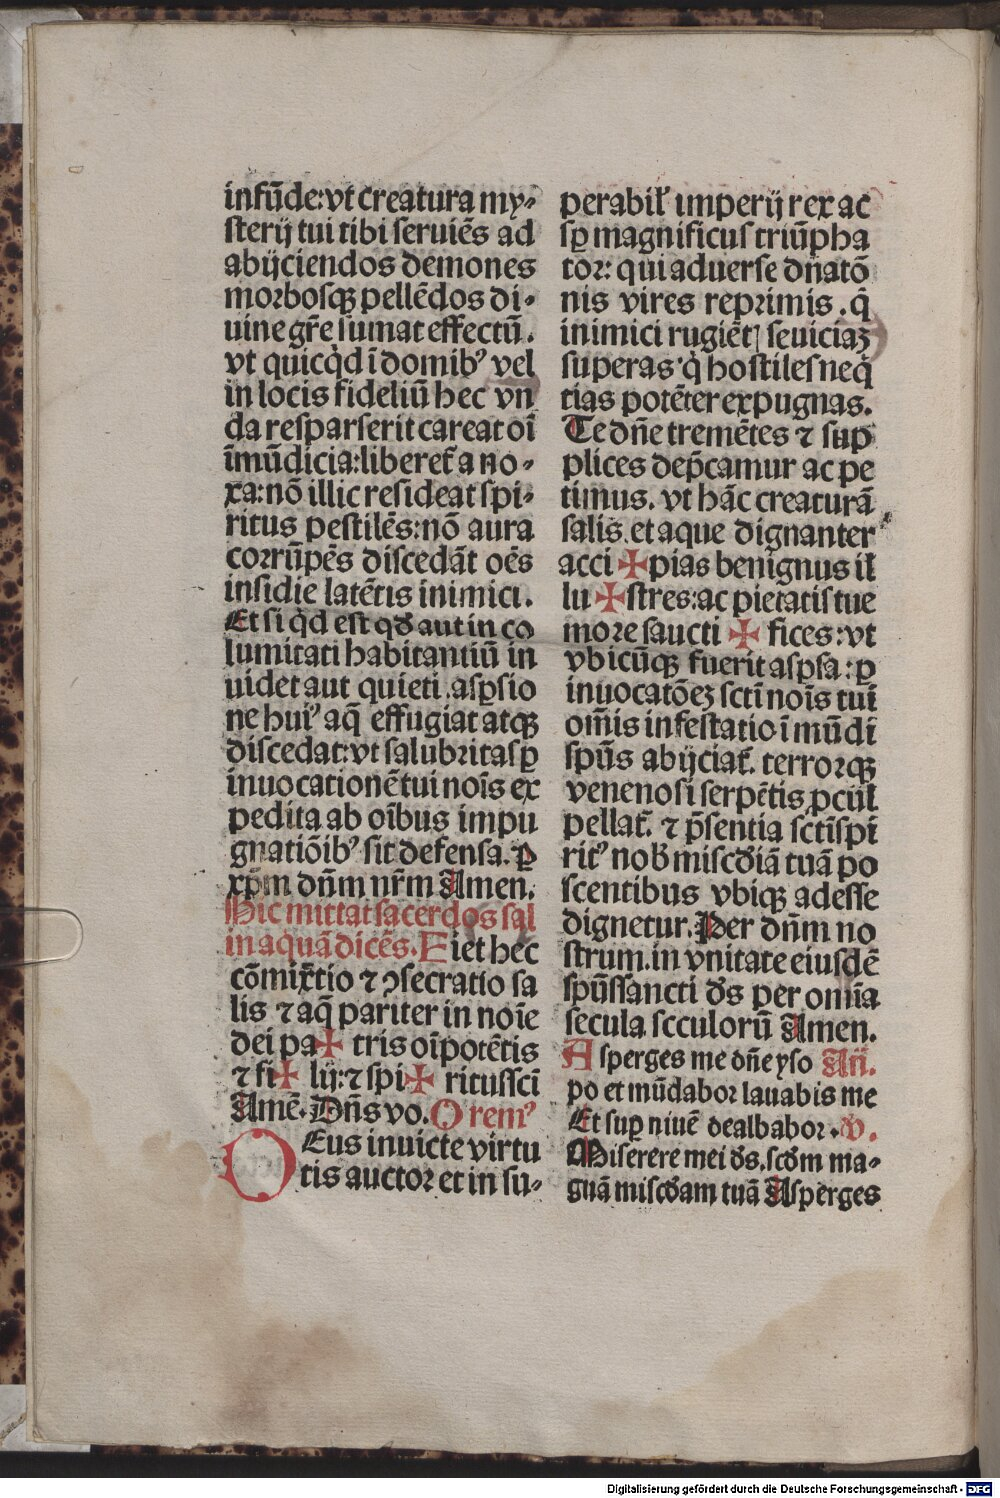 infūde:vt creatura my⸗
sterij tui tibi seruiēs ad
abijciendos demones
morbosqꝫ pellēdos di⸗
uine gr̄e sumat effectū.
vt quicq̇d ī domibꝰ vel
in locis fideliū hec vn
da resparserit careat oī
īmūdicia:liberet̄ a no⸗
xa:nō illic resideat spi⸗
ritus pestilēs:nō aura
corrūpēs discedāt oēs
insidie latētis inimici.
Et si q̇d est qð aut in co
lumitati habitantiū in
uidet aut quieti .aspsio
ne huiꝰ aq̄ effugiat atqꝫ
discedat:vt salubritas ꝑ
inuocationē tui noīs ex
pedita ab oībus impu
gnatiōibꝰ sit defensa. ꝑ
xp̄m dn̄m nr̄m Amen.
Hic mittat sacerdos sal
in aquā dicēs. Fiet hec
cōmix̄tio ⁊ ꝯsecratio sa
lis ⁊ aq̄ pariter in noīe
dei pa✠ tris oīpotētis
⁊ fi✠ lij:⁊ spi✠ ritussc̄i
Amē. Dn̄s vo. Oremꝰ
DEus inuicte virtu
tis auctor et in su⸗
perabil̕ imperij rex ac
sꝑ magnificus triūpha
tor: qui aduerse dn̄atō
nis vires reprimis .q̇
inimici rugiēt̄ seuiciaꝫ
superas q̇ hostiles neq̄
tias potēter expugnas.
Te dn̄e tremētes ⁊ sup
plices dep̄camur ac pe
timus. vt hāc creaturā
salis et aque dignanter
acci ✠pias benignus il
lu ✠stres:ac pietatis tue
more saucti ✠ fices:vt
vbicūqꝫ fuerit aspsa: ꝑ
inuocatōeꝫ sctī noīs tui
om̄is infestatio īmūdi
spūs abijciat̄. terrorqꝫ
venenosi serpētis ꝓcul
pellat̄. ⁊ p̄sentia sctī spi
ritꝰ nob̄ miscd̄iā tuā po
scentibus vbiqꝫ adesse
dignetur. Per dn̄m no
strum.in vnitate eiusdē
spūssancti ds̄ per omīa
secula scculorū Amen.
Asperges me dn̄e yso Añ.
po et mūdabor lauabis me
Et sup niuē dealbabor. v̄.
Miserere mei ds̄.scd̄m ma⸗
gnā miscd̄am tuā Asperges
Digitalisierung gefördert durch die Deutsche Forschungsgemeinschaft - DFG